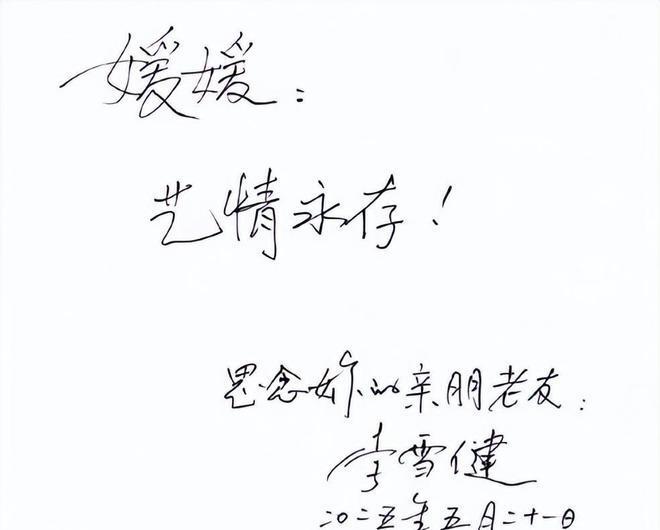 媛媛：
艺情永存！
思念妳的亲朋老友：
李雪健
二〇二五年五月二十一日